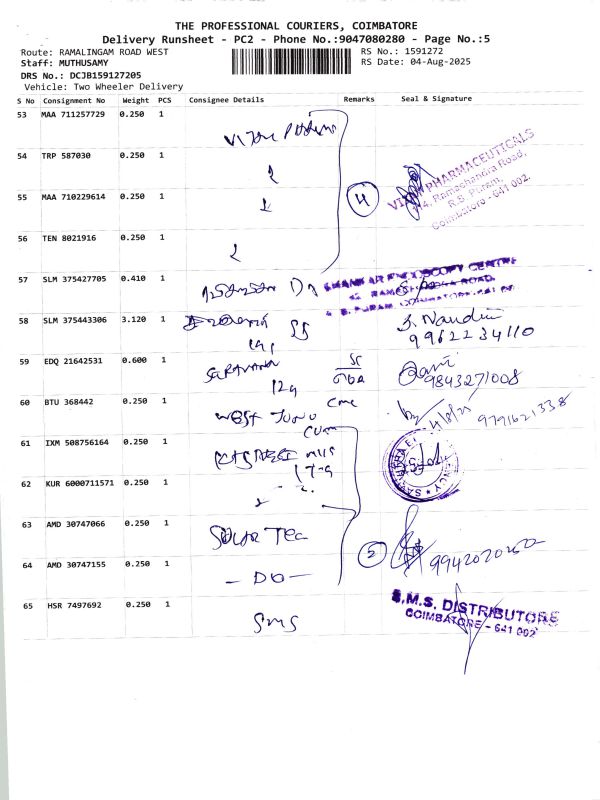 THE PROFESSIONAL COURIERS, COIMBATORE
Delivery Runsheet - PC2 - Phone No.:9047080280 - Page No.:5
Route: RAMALINGAM ROAD WEST
RS No.: 1591272
Staff: MUTHUSAMY
RS Date: 04-Aug-2025
DRS No.: DCJB159127205
Vehicle: Two Wheeler Delivery
S No Consignment No Weight PCS Consignee Details Remarks Seal & Signature
53 MAA 711257729 0.250 1
54 TRP 587030 0.250 1
55 MAA 710229614 0.250 1
4
PHARMACEUTICALS
Ramachandra Road,
R.S. Puram,
Coimbatore - 641 002.
56 TEN 8021916 0.250 1
57 SLM 375427705 0.410 1
ENDOSCOPY CENTRE
58 SLM 375443306 3.120 1
9962234110
59 EDQ 21642531 0.600 1
SARAVANA
9843271008
60 BTU 368442 0.250 1
WEST
9791621338
61 IXM 508756164 0.250 1
62 KUR 6000711571 0.250 1
63 AMD 30747066 0.250 1
SOLAR TEC
5
64 AMD 30747155 0.250 1
- DO -
65 HSR 7497692 0.250 1
SMS
S.M.S. DISTRIBUTORS
COIMBATORE - 641 002